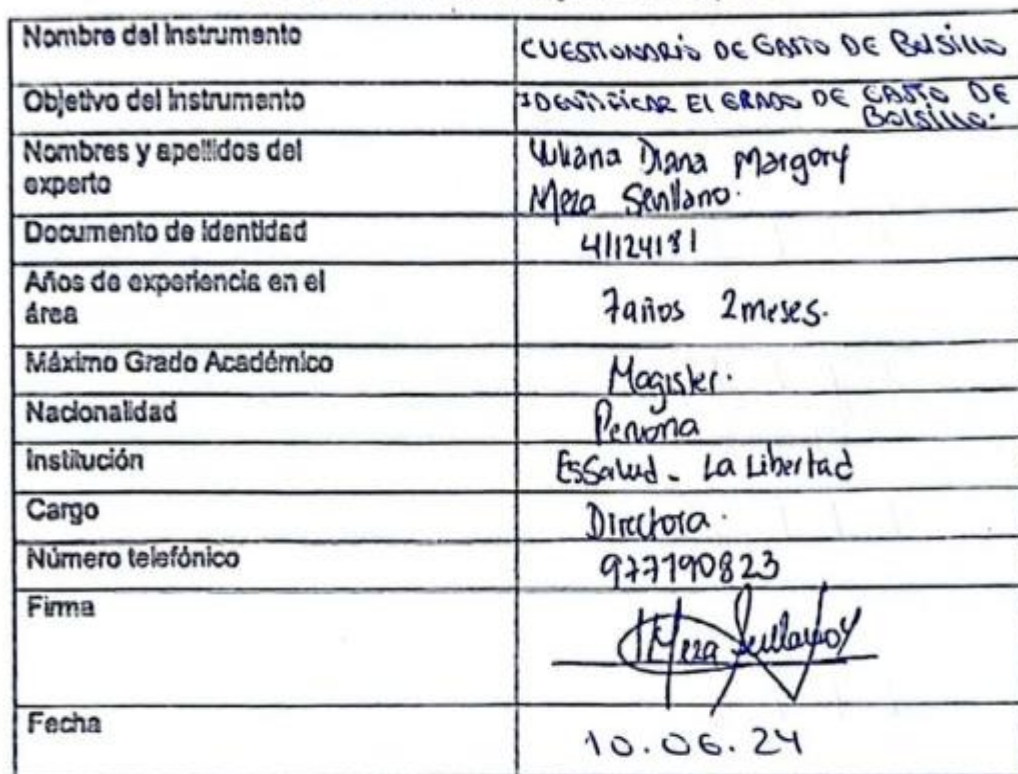 Nombre del Instrumento
CUESTIONARIO DE GASTO DE BOLSILLO
Objetivo del Instrumento
IDENTIFICAR El GRADO DE GASTO DE
Bolsillo.
Nombres y apellidos del
experto
Diana Margory
Meza
Documento de identidad
41124181
Años de experiencia en el
área
7años 2meses.
Máximo Grado Académico
Magister.
Nacionalidad
Peruana
Institución
EsSalud - La Libertad
Cargo
Directora.
Número telefónico
977190823
Firma
Meza
Fecha
10.06.24